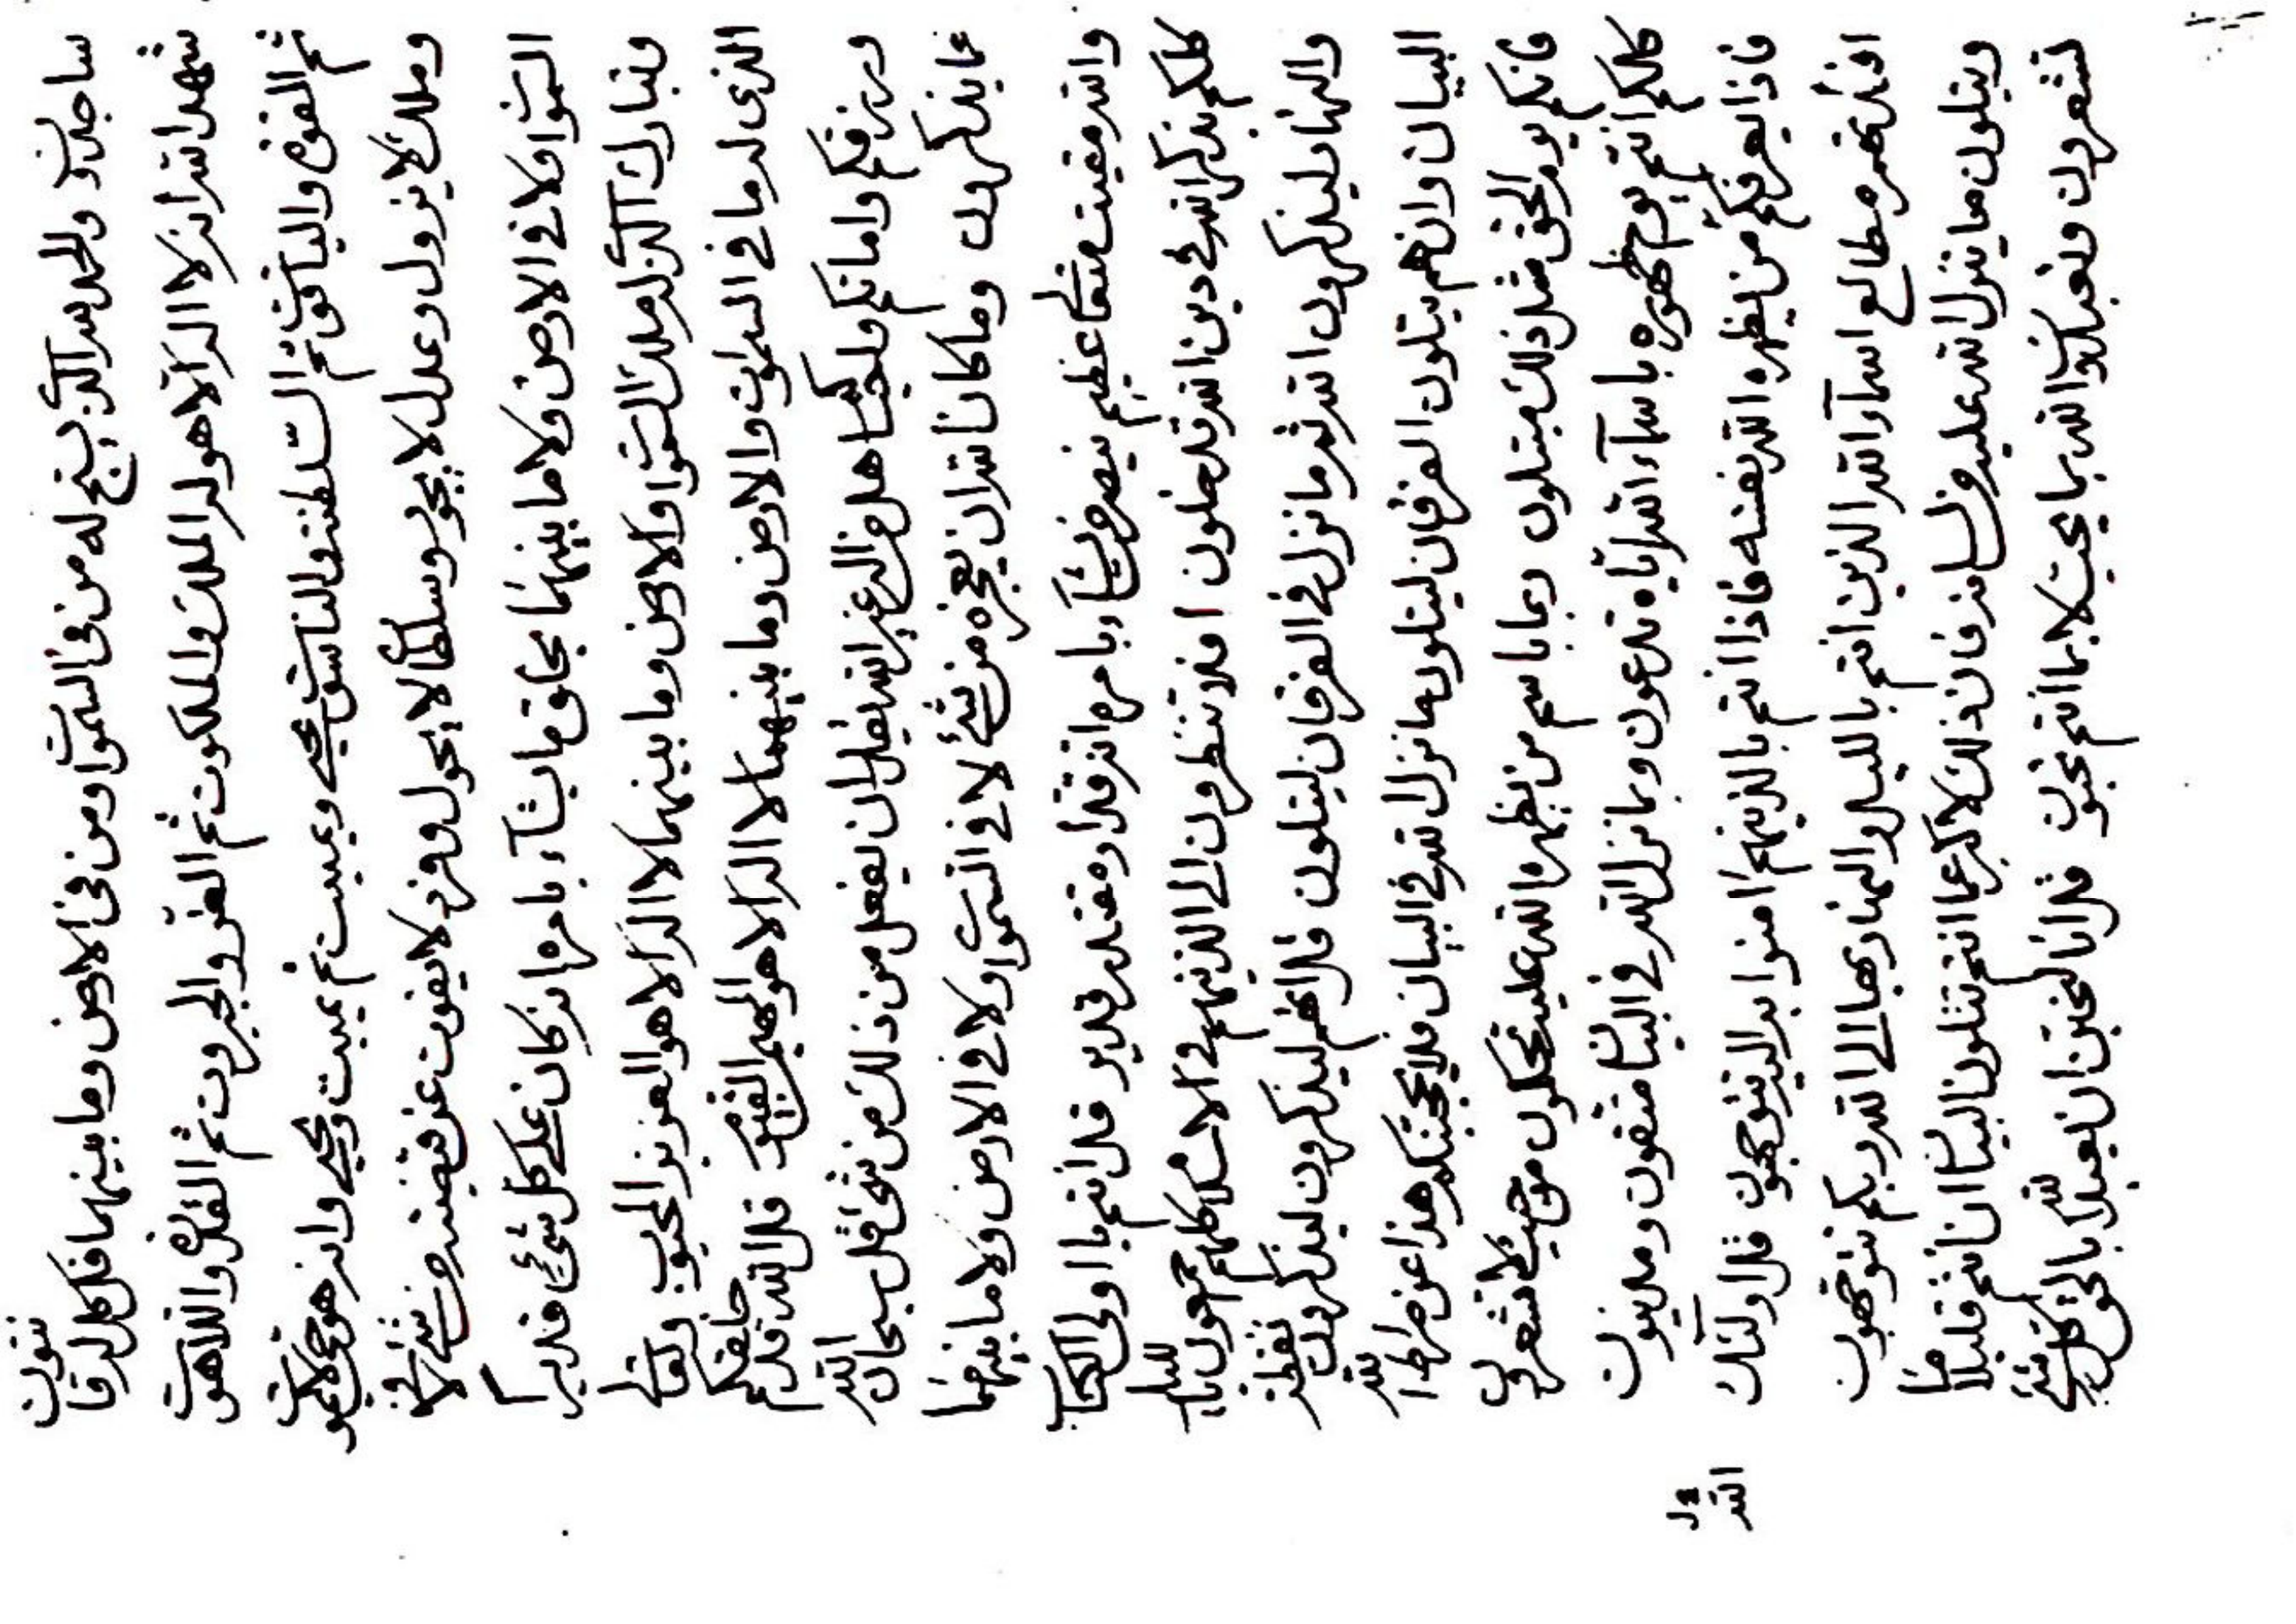 ساجدون والحمد لله الذى يسبح له من فى السموات ومن فى الارض وما بينهما قل كل له قانتون
شهد الله انه لا اله الا هو له الملك والملكوت ثم العز والجبروت ثم القدرة واللاهوت
ثم القوة والياقوت ثم السلطنة والناسوت يحيى ويميت ثم يميت ويحيى وانه هو حى لا يموت
وملك لا يزول وعدل لا يجور وسلطان لا يحول وفرد لا يفوت عن قبضته من شئ لا فى
السموات ولا فى الارض ولا ما بينهما يخلق ما يشآء بامره انه كان على كل شئ قديراً
وتبارك الذى له ملك السموات والارض وما بينهما لا اله الا هو العزيز المحبوب وتعالى
الذى له ما فى السموات والارض وما بينهما لا اله الا هو المهيمن القيوم قل الله قد خلقكم
ورزقكم واماتكم واحياكم هل من اله غير الله يقدر ان يفعل من ذلك من شئ قل سبحان الله
عما يذكرون وما كان الله ان يعجزه من شئ لا فى السموات ولا فى الارض ولا ما بينهما
والله مقيت عظيم ينصر من يشآء بامره انه قدار مقتدر قدير قل انتم يا اولى الكتاب
كلكم بذكر الله فى دين الله تدخلون افلا تنظرون الى الذينهم فى الاسلام كلهم بالليل
والنهار ليذكرون الله ثم ما نزل فى الفرقان ليتلون قل انهم ليذكرون
البيان وان هم يتلون الفرقان ليتلون ما نزل الله فى البيان فلا يحجبنكم هذا عن صراط الله
فانكم يوم الحق مثل ذلك مبتلون ربما باسم من يظهره الله عليه تحكمون من حيث لا تشعرون
كلكم انتم يوم ظهوره باسمآء الله اياه تدعون وبما نزل الله فى البيان متقون ومدينون
فاذا يعرفكم من يظهره الله نفسه فاذا انتم بالذينهم امنوا به اليه توجهون قل اولئك
افئدتهم مطالع اسمآء الله الذين انتم بالليل والنهار بها الى الله ربكم تتوجهون
ويتلون ما ينزل الله عليه فان ذلك لاكبر عما انتم تتلون البيان ان انتم قليلا ما
تشعرون وتعبدون الله بما يحب لا بما انتم تحبون قل انا لنحبن ان نعبد الله بالحق كل شئ
الله